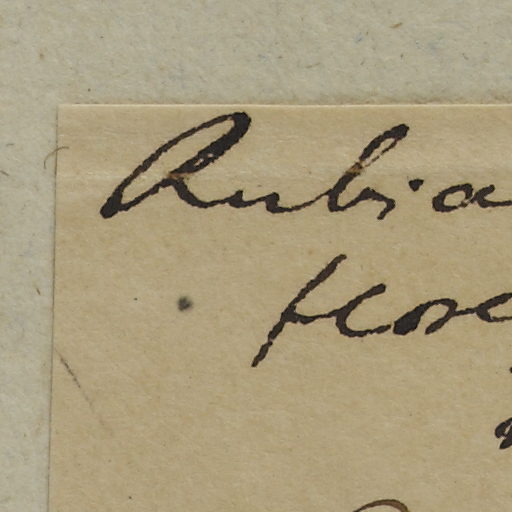 Rubia
flore